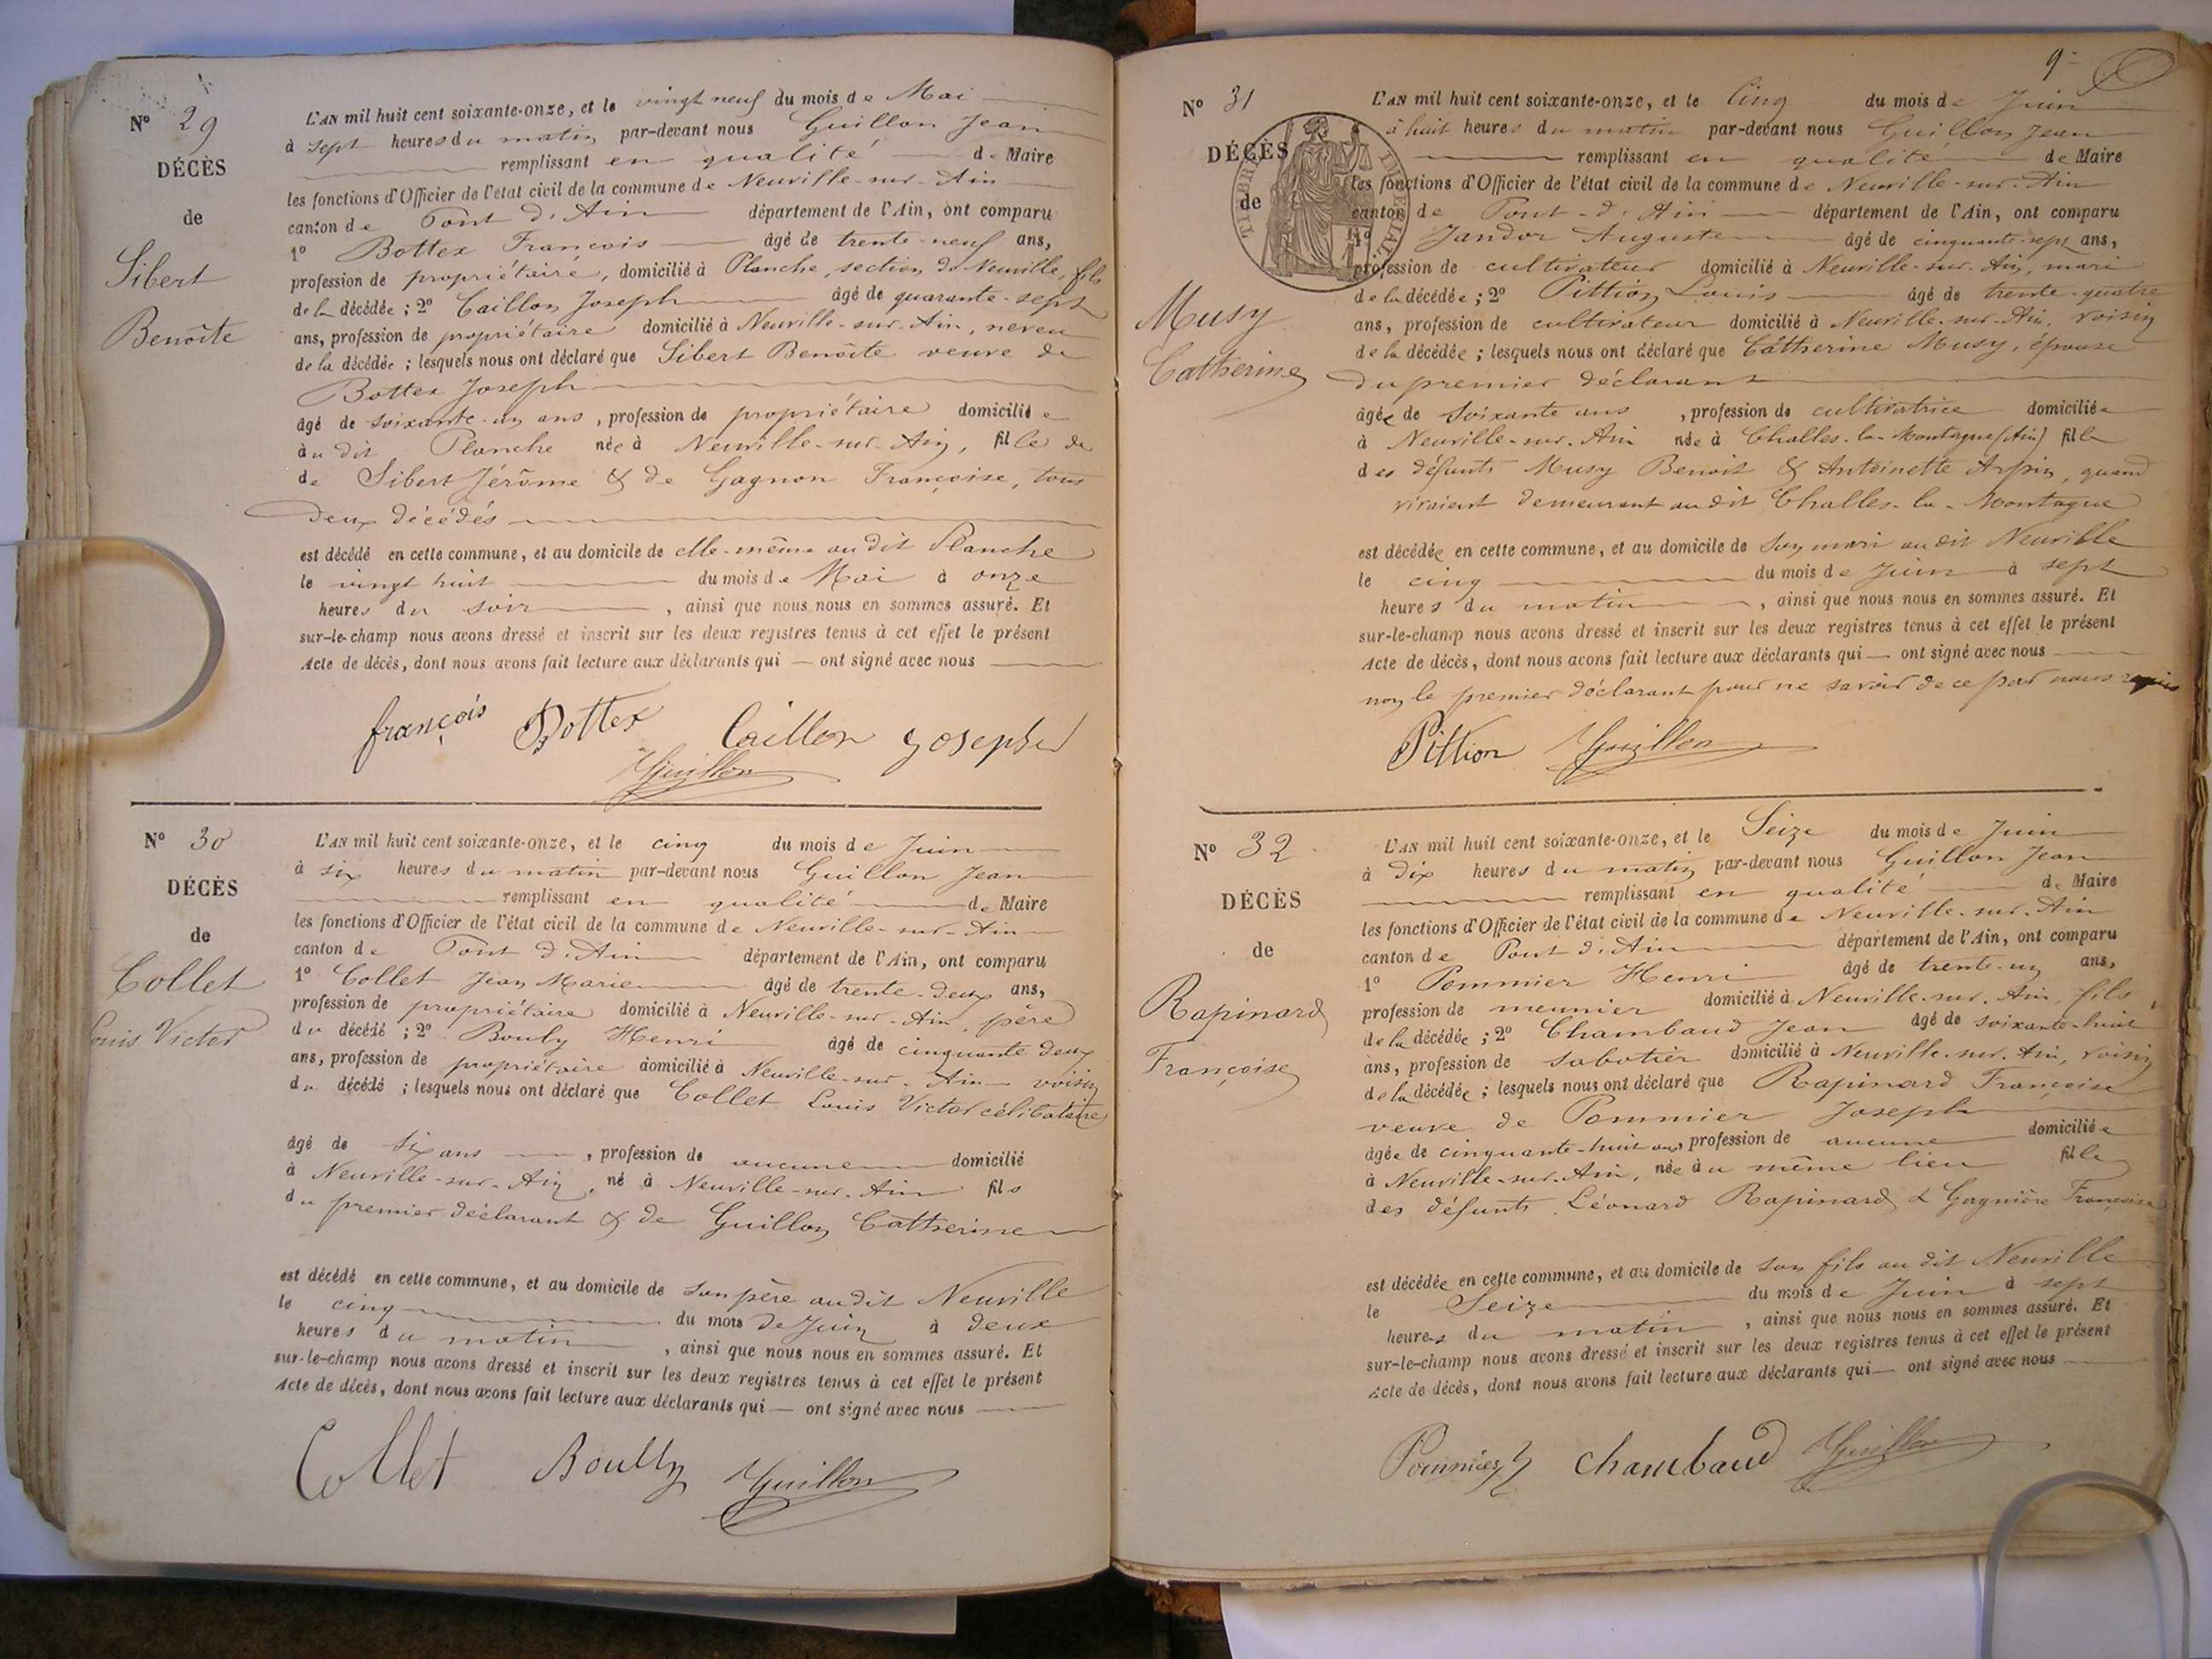 N° 29
DÉCÈS
de
Sibert
Benoîte
L'AN mil huit cent soixante-onze, et le vingt neuf du mois de Mai
à sept heures du matin par-devant nous Guillon Jean
remplissant en qualité de Maire
les fonctions d'Officier de l'état civil de la commune de Neuville-sur-Ain
canton de Pont d'Ain département de l'Ain, ont comparu
1° Bottex François âgé de trente-neuf ans,
profession de propriétaire, domicilié à Planche, section de Neuville, fils
de la décédée ; 2° Caillon Joseph âgé de quarante-sept
ans, profession de propriétaire domicilié à Neuville-sur-Ain, neveu
de la décédée ; lesquels nous ont déclaré que Sibert Benoîte veuve de
Bottex Joseph
âgé de soixante-un ans, profession de propriétaire domiciliée
à u dit Planche née à Neuville-sur-Ain, fille de
de Sibert Jérôme & de Gagnon Françoise, tous
deux décédés
est décédé en cette commune, et au domicile de elle-même au dit Planche
le vingt huit du mois de Mai à onze
heures du soir, ainsi que nous nous en sommes assuré. Et
sur-le-champ nous avons dressé et inscrit sur les deux registres tenus à cet effet le présent
Acte de décès, dont nous avons fait lecture aux déclarants qui — ont signé avec nous
françois Bottex Caillon Joseph
Guillon
N° 30
DÉCÈS
de
Collet
Louis Victor
L'AN mil huit cent soixante-onze, et le cinq du mois de Juin
à six heures du matin par-devant nous Guillon Jean
remplissant en qualité de Maire
les fonctions d'Officier de l'état civil de la commune de Neuville-sur-Ain
canton de Pont d'Ain département de l'Ain, ont comparu
1° Collet Jean Marie âgé de trente-deux ans,
profession de propriétaire domicilié à Neuville-sur-Ain, père
du décédé ; 2° Bouly Henri âgé de cinquante deux
ans, profession de propriétaire domicilié à Neuville-sur-Ain voisin
du décédé ; lesquels nous ont déclaré que Collet Louis Victor célibataire
âgé de six ans, profession de aucune domicilié
à Neuville-sur-Ain, né à Neuville-sur-Ain fils
du premier déclarant & de Guillon Catherine
est décédé en cette commune, et au domicile de son père audit Neuville
le cinq du mois de Juin à deux
heures du matin, ainsi que nous nous en sommes assuré. Et
sur-le-champ nous avons dressé et inscrit sur les deux registres tenus à cet effet le présent
Acte de décès, dont nous avons fait lecture aux déclarants qui — ont signé avec nous
Collet Boully Guillon
9
N° 31
DÉCÈS
de
Musy
Catherine
L'AN mil huit cent soixante-onze, et le Cinq du mois de Juin
à huit heures du matin par-devant nous Guillon Jean
remplissant en qualité de Maire
les fonctions d'Officier de l'état civil de la commune de Neuville-sur-Ain
canton de Pont-d'Ain département de l'Ain, ont comparu
1° Jandor Auguste âgé de cinquante-sept ans,
profession de cultivateur domicilié à Neuville-sur-Ain, mari
de la décédée ; 2° Pittion Louis âgé de trente-quatre
ans, profession de cultivateur domicilié à Neuville-sur-Ain, voisin
de la décédée ; lesquels nous ont déclaré que Catherine Musy, épouse
du premier déclarant
âgée de soixante ans, profession de cultivatrice domiciliée
à Neuville-sur-Ain née à Challes-la-Montagne (Ain) fille
des défunts Musy Benoit & Antoinette Arpin, quand
vivaient demeurant au dit Challes-la-Montagne
est décédée en cette commune, et au domicile de son mari au dit Neuville
le cinq du mois de Juin à sept
heures du matin, ainsi que nous nous en sommes assuré. Et
sur-le-champ nous avons dressé et inscrit sur les deux registres tenus à cet effet le présent
Acte de décès, dont nous avons fait lecture aux déclarants qui — ont signé avec nous
non le premier déclarant pour ne savoir de ce par nous requis
Pittion Guillon
N° 32
DÉCÈS
de
Rapinard
Françoise
L'AN mil huit cent soixante-onze, et le Seize du mois de Juin
à dix heures du matin par-devant nous Guillon Jean
remplissant en qualité de Maire
les fonctions d'Officier de l'état civil de la commune de Neuville-sur-Ain
canton de Pont d'Ain département de l'Ain, ont comparu
1° Pommier Henri âgé de trente-un ans,
profession de meunier domicilié à Neuville-sur-Ain, fils
de la décédée ; 2° Chambaud Jean âgé de soixante-huit
ans, profession de sabotier domicilié à Neuville-sur-Ain, voisin
de la décédée ; lesquels nous ont déclaré que Rapinard Françoise
veuve de Pommier Joseph
âgée de cinquante-huit ans, profession de aucune domiciliée
à Neuville-sur-Ain, née à u même lieu fille
des défunts Léonard Rapinard & Gagnière Françoise
est décédée en cette commune, et au domicile de son fils au dit Neuville
le Seize du mois de Juin à sept
heures du matin, ainsi que nous nous en sommes assuré. Et
sur-le-champ nous avons dressé et inscrit sur les deux registres tenus à cet effet le présent
Acte de décès, dont nous avons fait lecture aux déclarants qui — ont signé avec nous
Pommier h chambaud Guillon